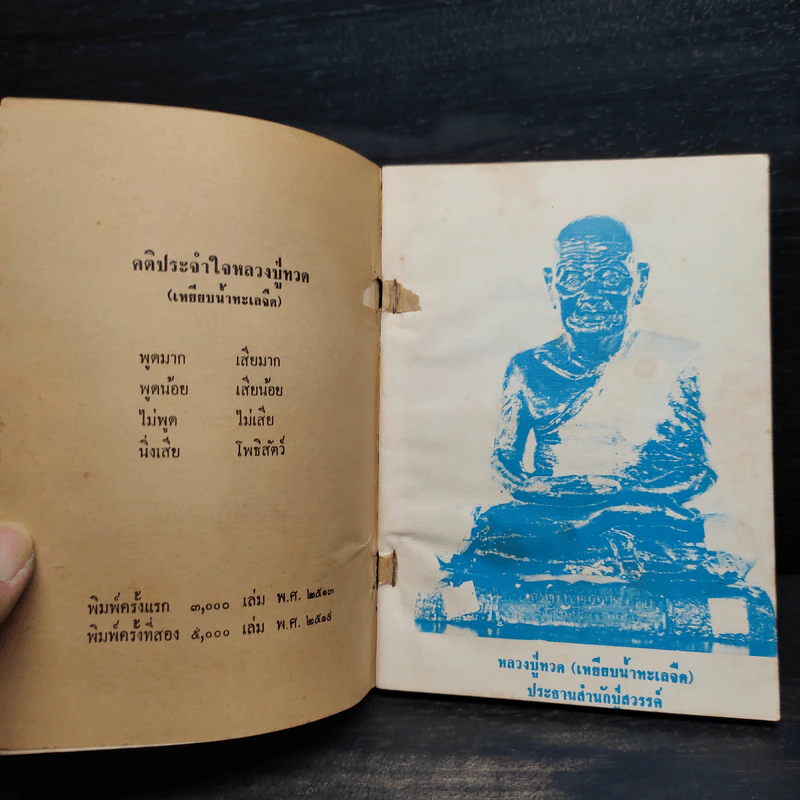 คติประจำใจหลวงปู่ทวด
(เหยียบน้ำทะเลจืด)
พูดมาก เสียมาก
พูดน้อย เสียน้อย
ไม่พูด ไม่เสีย
นิ่งเสีย โพธิสัตว์
พิมพ์ครั้งแรก ๓,๐๐๐ เล่ม พ.ศ. ๒๕๑๓
พิมพ์ครั้งที่สอง ๕,๐๐๐ เล่ม พ.ศ.
หลวงปู่ทวด (เหยียบน้ำทะเลจืด)
ประธานสำนักปู่สวรรค์